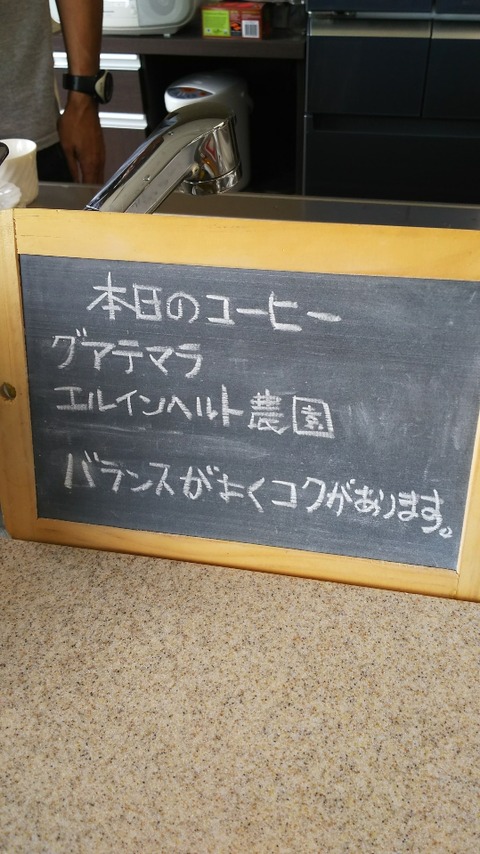 本日のコーヒー
グアテマラ
エルインヘルト農園
バランスがよくコクがあります。